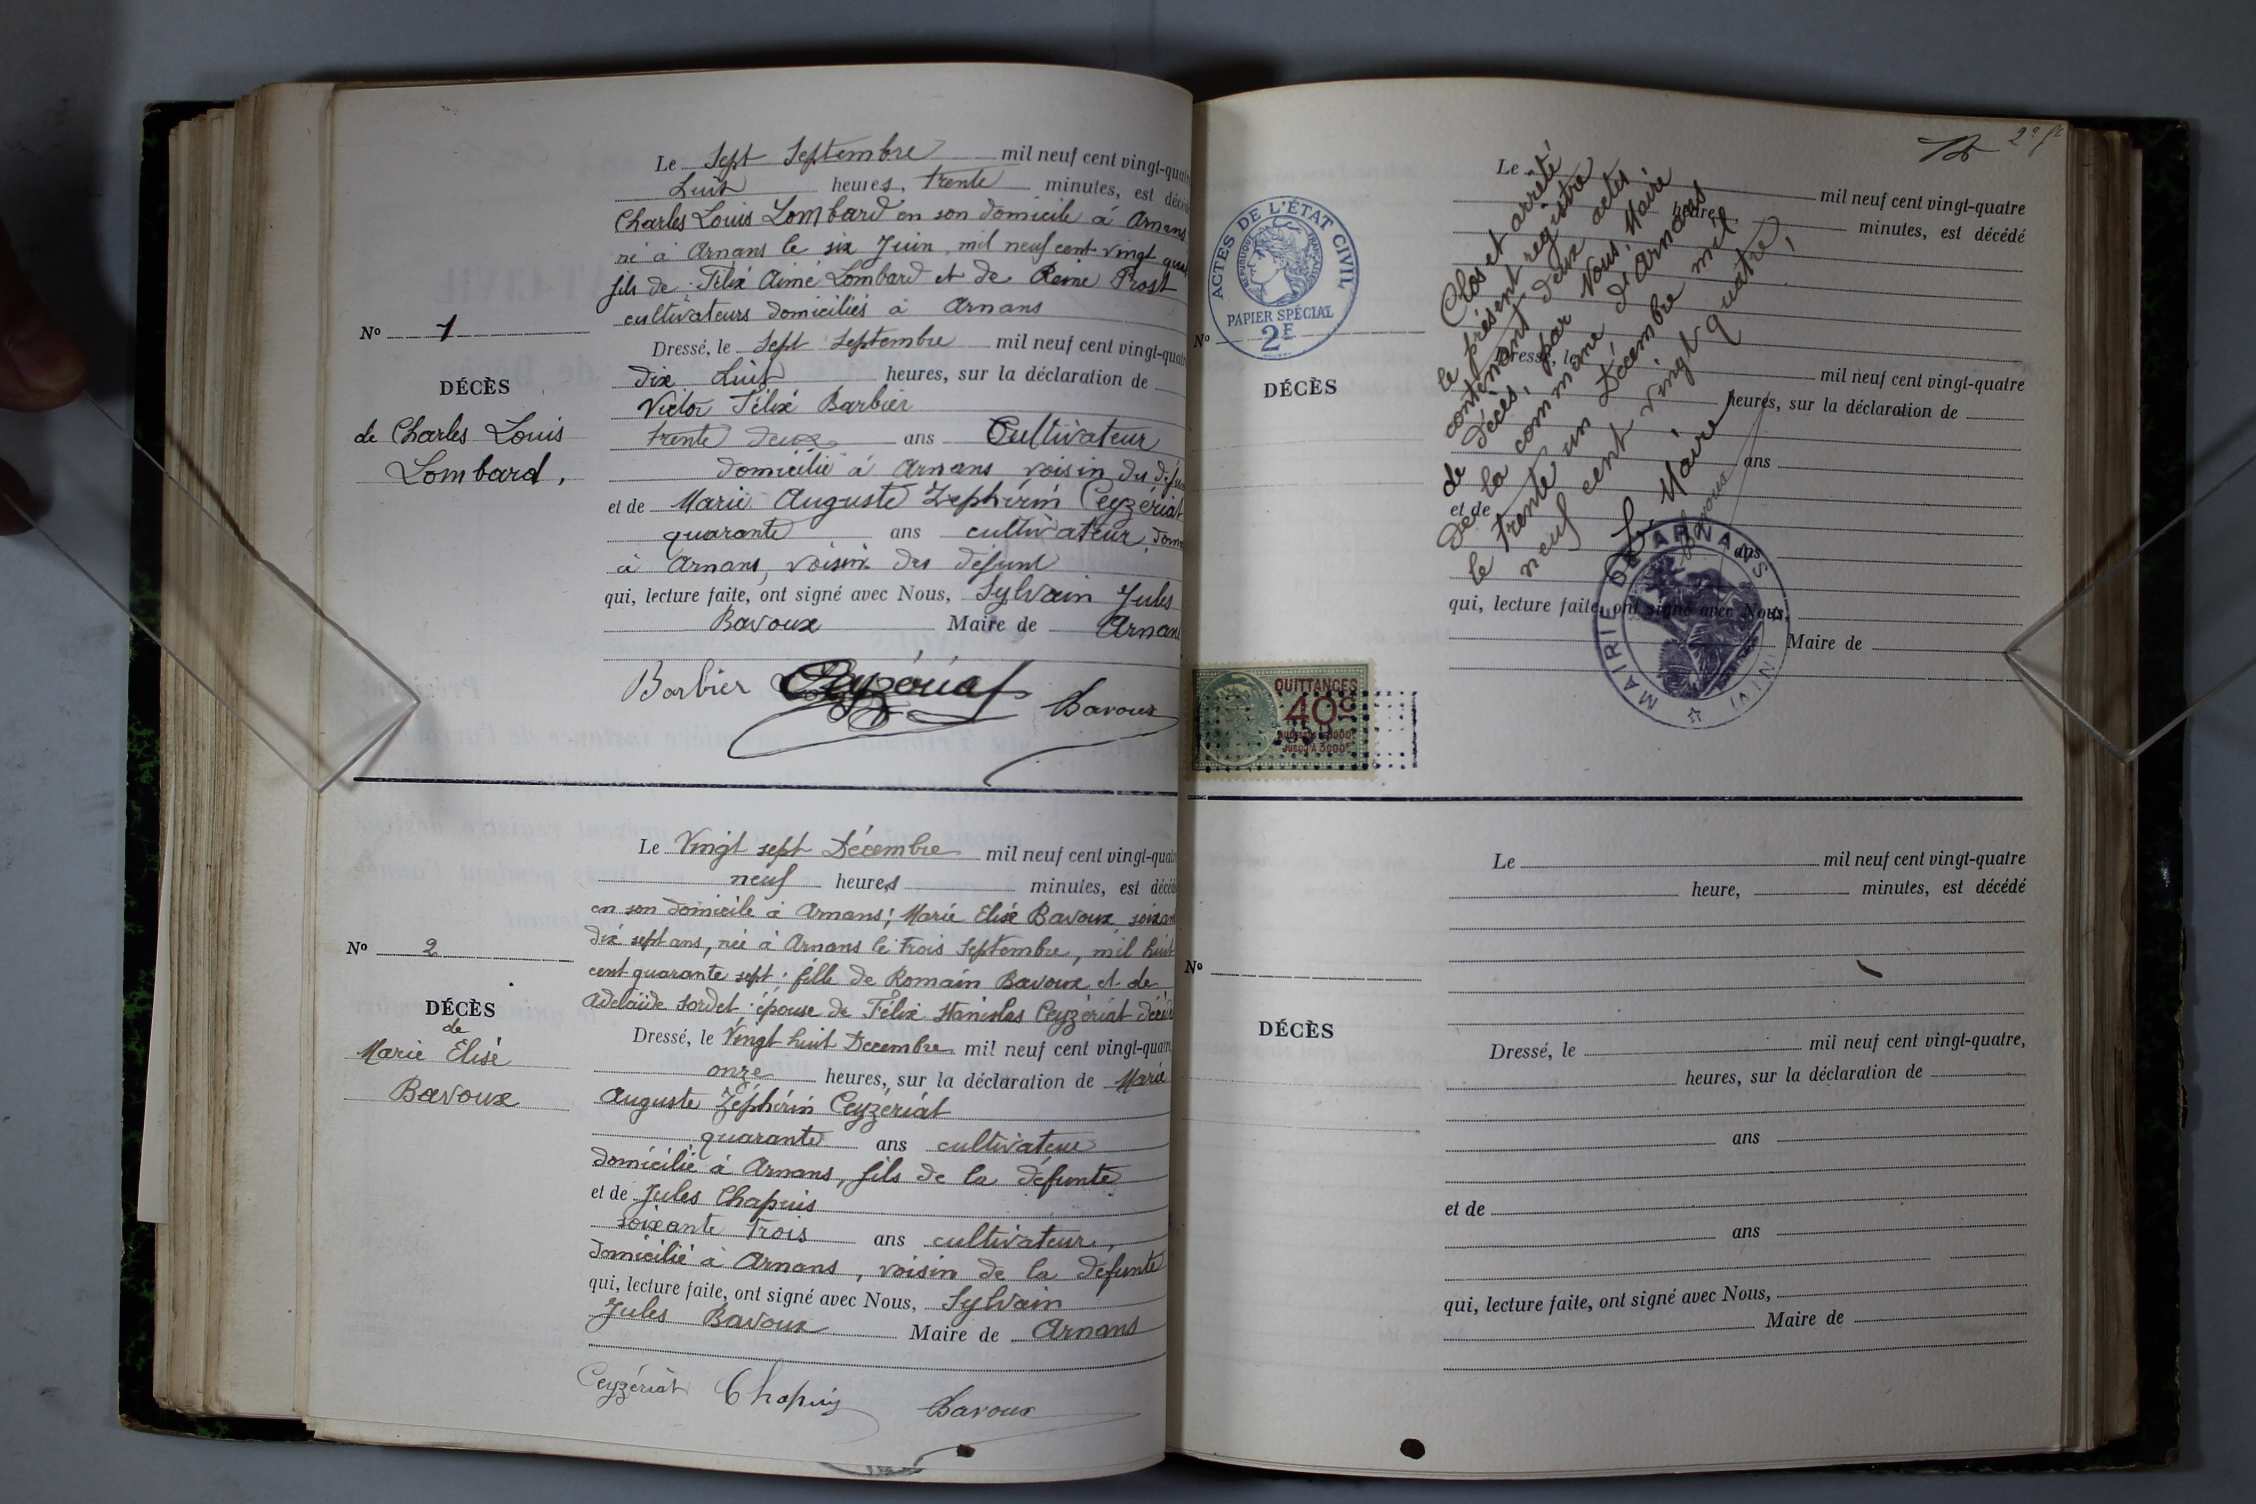 Le Sept Septembre mil neuf cent vingt-quatr
huit heures, trente minutes, est décéd
Charles Louis Lombard en son domicile à Arnans
né à Arnans le six Juin mil neuf cent vingt quat
fils de Félix Aimé Lombard et de Reine Prost
cultivateurs domiciliés à Arnans
N° 1
Dressé, le Sept Septembre mil neuf cent vingt-quatr
dix huit heures, sur la déclaration de
DÉCÈS
Victor Félix Barbier
de Charles Louis
Lombard,
trente deux ans Cultivateur
domicilié à Arnans voisin du défun
et de Marie Auguste Zéphirin Ceyzériat
quarante ans cultivateur, dom
à Arnans, voisin du défunt
qui, lecture faite, ont signé avec Nous, Sylvain Jules
Bavoux Maire de Arnans
Barbier Ceyzériat Bavoux
Le Vingt sept Décembre mil neuf cent vingt-quatr
neuf heures minutes, est décéd
en son domicile à Arnans; Marie Elise Bavoux soixan
dix sept ans, née à Arnans le trois Septembre, mil huit
N° 2
cent quarante sept; fille de Romain Bavoux et de
Adélaïde Sordet; épouse de Félix Stanislas Ceyzériat décéd
DÉCÈS
de
Marie Elise
Bavoux
Dressé, le Vingt huit Décembre mil neuf cent vingt-quatr
onze heures, sur la déclaration de Marie
Auguste Zéphirin Ceyzériat
quarante ans cultivateur
domicilié à Arnans, fils de la défunte
et de Jules Chapuis
soixante trois ans cultivateur,
domicilié à Arnans, voisin de la défunte
qui, lecture faite, ont signé avec Nous, Sylvain
Jules Bavoux Maire de Arnans
Ceyzériat Chapuis Bavoux
ACTES DE L'ÉTAT CIVIL
RÉPUBLIQUE FRANÇAISE
PAPIER SPÉCIAL
2F
Le mil neuf cent vingt-quatre
heure, minutes, est décédé
N°
DÉCÈS
Dressé, le mil neuf cent vingt-quatre
heures, sur la déclaration de
ans
et de
ans
qui, lecture faite, ont signé avec Nous,
Maire de
Clos et arrêté
le présent registre
contenant deux actes
de décès, par Nous, Maire
de la commune d'Arnans
le trente un Décembre mil
neuf cent vingt quatre,
Le Maire
Bavoux
MAIRIE DE ARNANS
(AIN)
QUITTANCES
40c
JUSQU'A 3000F
Le mil neuf cent vingt-quatre
heure, minutes, est décédé
N°
DÉCÈS
Dressé, le mil neuf cent vingt-quatre,
heures, sur la déclaration de
ans
et de
ans
qui, lecture faite, ont signé avec Nous,
Maire de